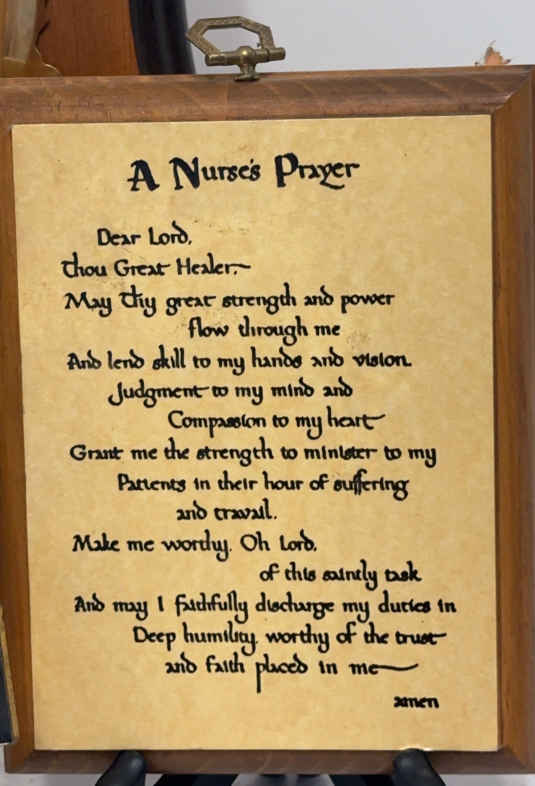 A Nurse's Prayer
Dear Lord,
Thou Great Healer,
May Thy great strength and power
flow through me
And lend skill to my hands and vision.
Judgment to my mind and
Compassion to my heart
Grant me the strength to minister to my
Patients in their hour of suffering
and travail.
Make me worthy, Oh Lord,
of this saintly task
And may I faithfully discharge my duties in
Deep humility, worthy of the trust
and faith placed in me
amen